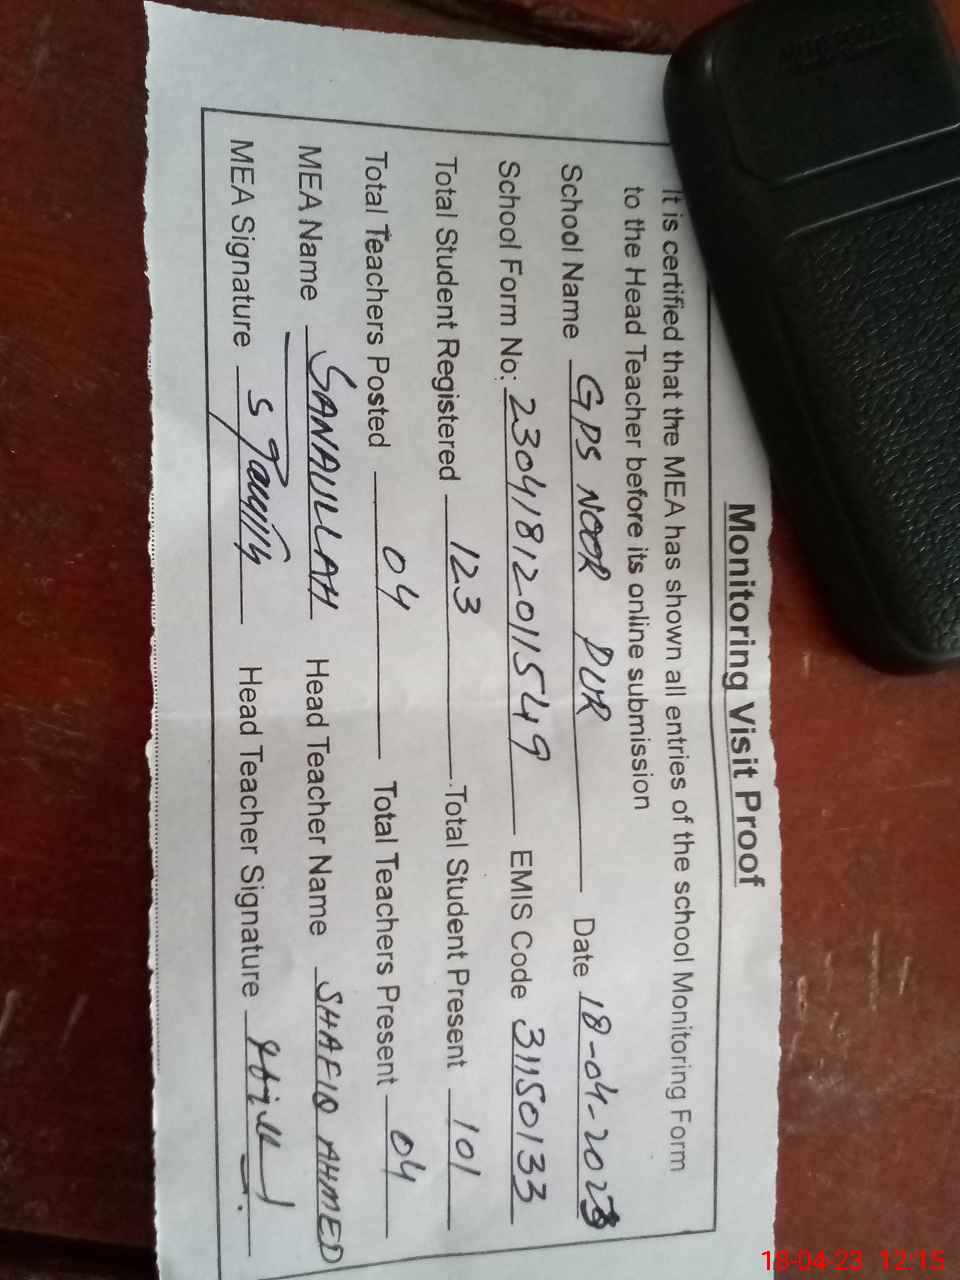 Monitoring Visit Proof
It is certified that the MEA has shown all entries of the school Monitoring Form
to the Head Teacher before its online submission
School Name GPS NOOR PUR Date 18-04-2023
School Form No: 2304181201154 9 EMIS Code 31150133
Total Student Registered 123 Total Student Present 101
Total Teachers Posted 04 Total Teachers Present 04
MEA Name SANAULLAH Head Teacher Name SHAFIQ AHMED
MEA Signature Head Teacher Signature
18-04-23 12:15